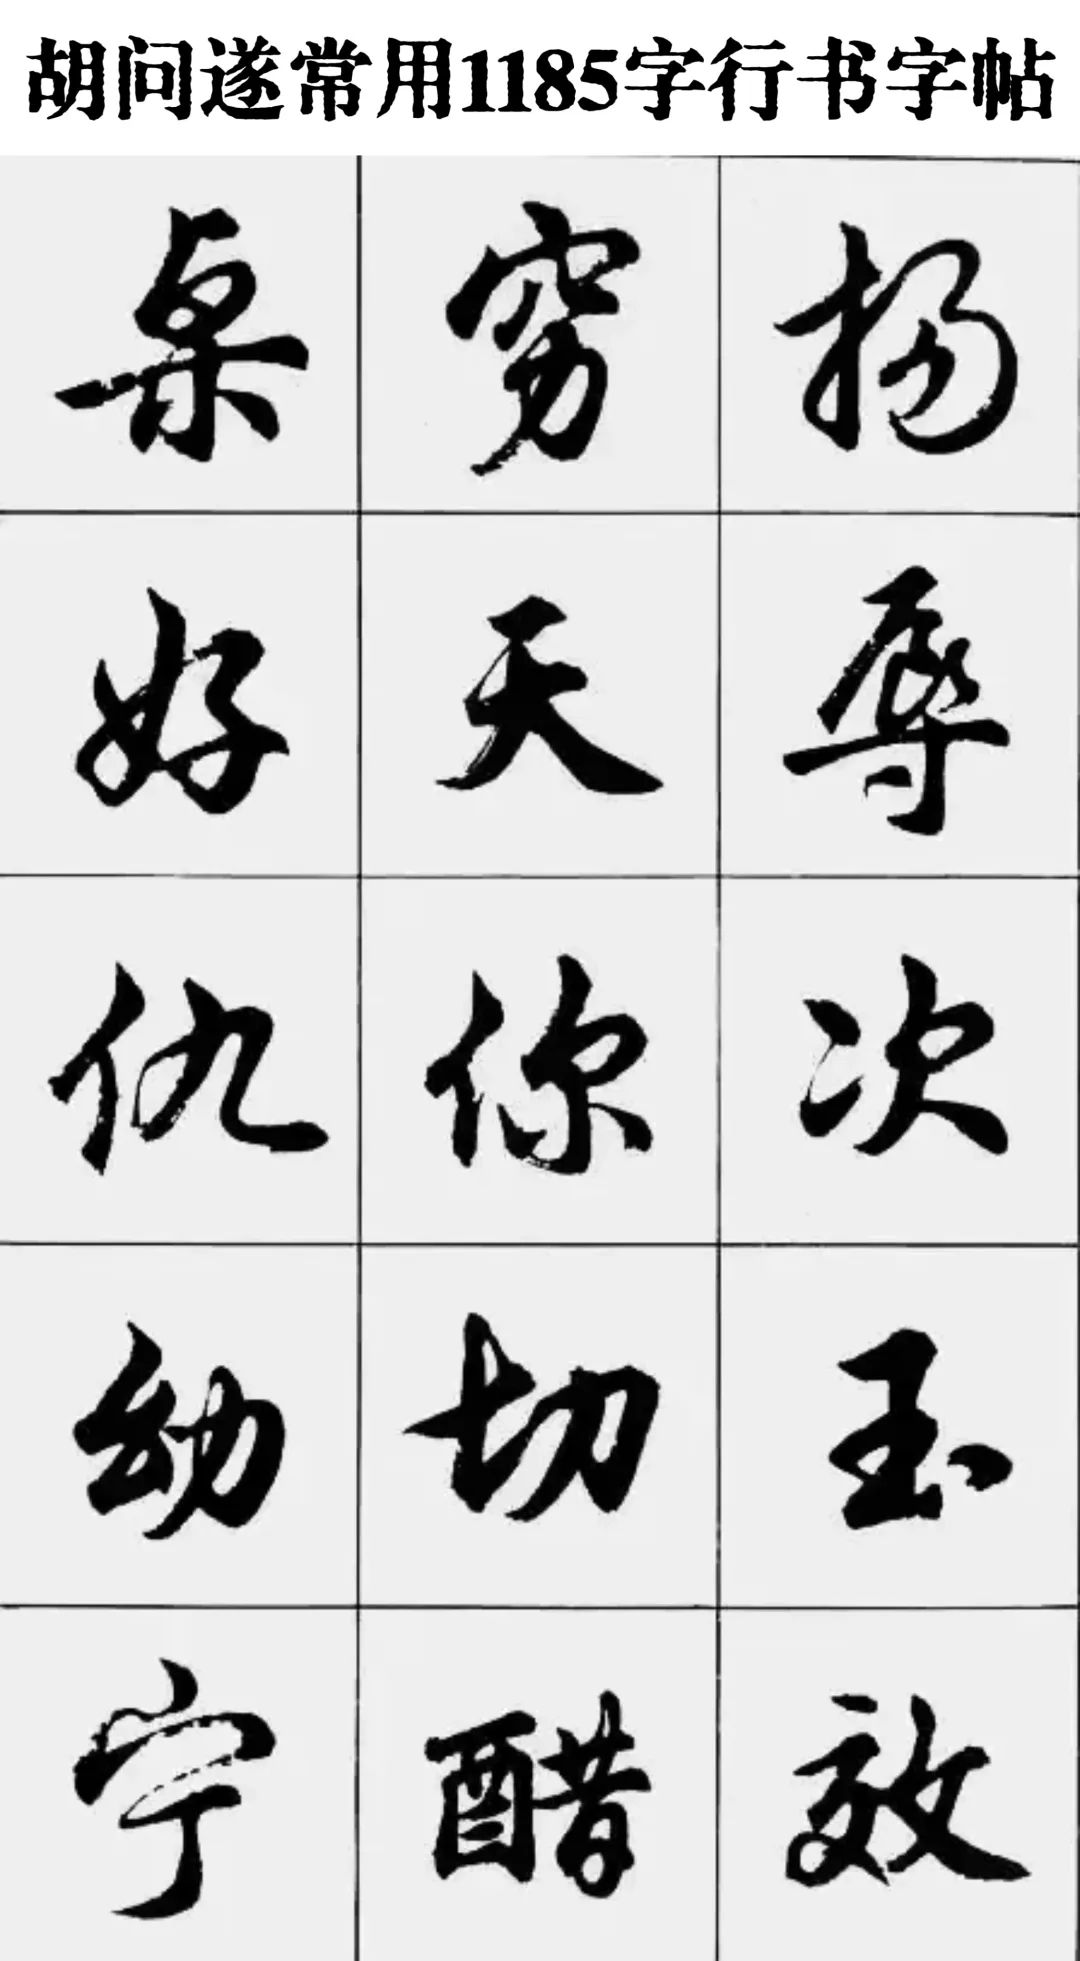 胡问遂常用1185字行书字帖
桌 穷 扬
好 天 辱
仇 你 次
幼 切 玉
宁 醋 效